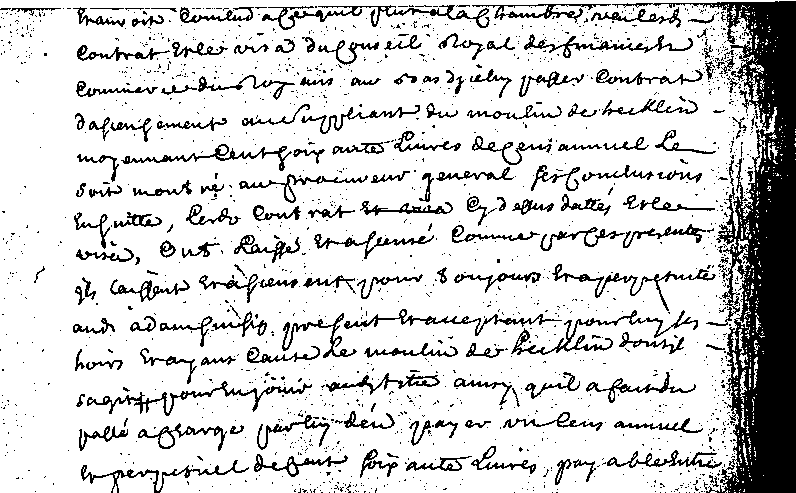 Et au soit Conclud a Ce quil plut a la Chambre, veu led.
Contrat Et le visa du Conseil Royal des finances Et
Commerce du Roy mis au bas d'jceluy passer Contrat
d'ascensement au Suppliant du moulin de hecklin
moyennant Cent soixante Livres de Cens annuel Le
soit montré au procureur general ses Conclusions
Ensuitte, Led. Contrat Et visa Cy dessus dattés Et le
visa, Ont Laissé Et ascensé Comme par Ces presentes
jls Laissent Et ascensent pour toujours Et a perpetuité
aud. adam present Et acceptant pour luy ses
hoirs Et ayans Cause Le moulin de hecklin dont il
s'agit pour En joüir aud. titre ainsy qu'il a fait du
passé a Charge par luy d'en payer un Cens annuel
Et perpetuel de Cent soixante Livres, payable Entre